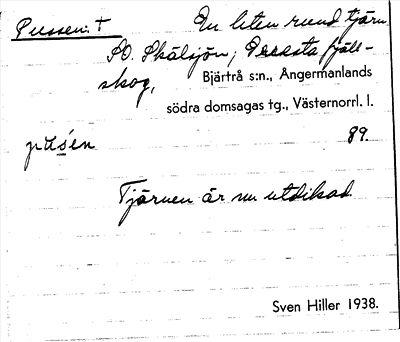 Pussen. + En liten rund tjärn
SO. Skälsjön; Dersta fjäll-
skog, Bjärtrå s:n., Ångermanlands
södra domsagas tg., Västernorrl. l.
pùs̀en 89.
Tjärnen är nu utdikad
Sven Hiller 1938.